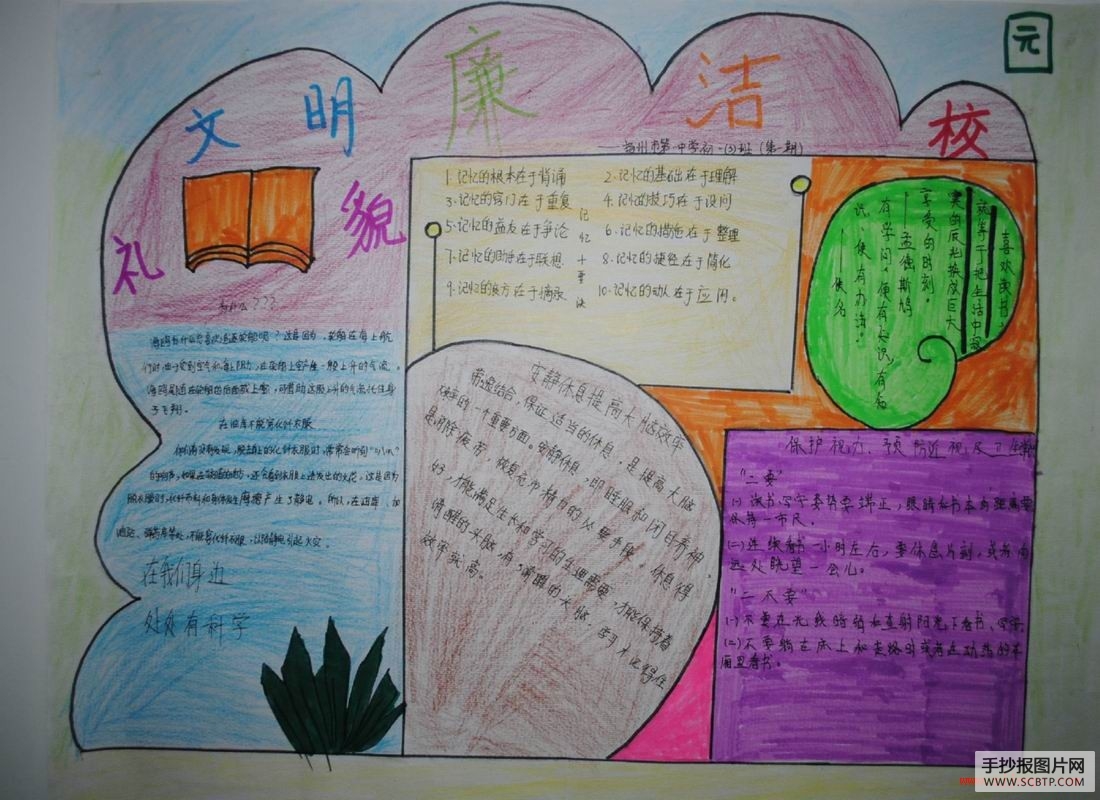 元
文明廉洁校
礼貌
——扬州市第一中学初一(3)班 (第一期)
记忆十要诀
1.记忆的根本在于背诵
2.记忆的基础在于理解
3.记忆的窍门在于重复
4.记忆的技巧在于设问
5.记忆的益友在于争论
6.记忆的措施在于整理
7.记忆的助手在于联想
8.记忆的捷径在于简化
9.记忆的良方在于摘录
10.记忆的动人在于应用。
喜欢读书，
就等于把生活中寂
寞的辰光换成巨大
享受的时刻。
——孟德斯鸠
有学问，便有知识，有知
识，便有办法。
——佚名
为什么???
海鸥为什么总喜欢追逐轮船呢？这是因为，轮船在海上航
行时，由于受到空气和海上阻力，在轮船上空产生一股上升的气流。
海鸥尾随在轮船的后面或上空，可借助这股上升的气流托住身
子飞翔。
在油库不能穿化纤衣服
的响声，如果在较暗的地方，还会看到衣服上迸发出的火花，这是因为
脱衣服时，化纤布料和身体发生摩擦产生了静电。所以，在油库、加
油站、弹药库等处，不能穿化纤衣服，以防静电引起火灾。
在我们身边
处处有科学
安静休息提高大脑效率
劳逸结合，保证适当的休息，是提高大脑
效率的一个重要方面。安静休息，即睡眠和闭目养神，
是消除疲劳，恢复充沛精力的必要手段。休息得
好，才能满足生长和学习的生理需要，才能保持着
清醒的头脑，有清醒的大脑，学习才记得住
效率就高。
保护视力、预防近视及卫生常
“二要”
(一)读书写字姿势要端正，眼睛和书本的距离要
保持一市尺。
(二)连续看书一小时左右，要休息片刻，或者向
远处眺望一会儿。
“二不要”
(一)不要在光线暗弱和直射阳光下看书、写字。
(二)不要躺在床上和走路时或者在动荡的车
厢里看书。
手抄报图片网
WWW.SCBTP.COM